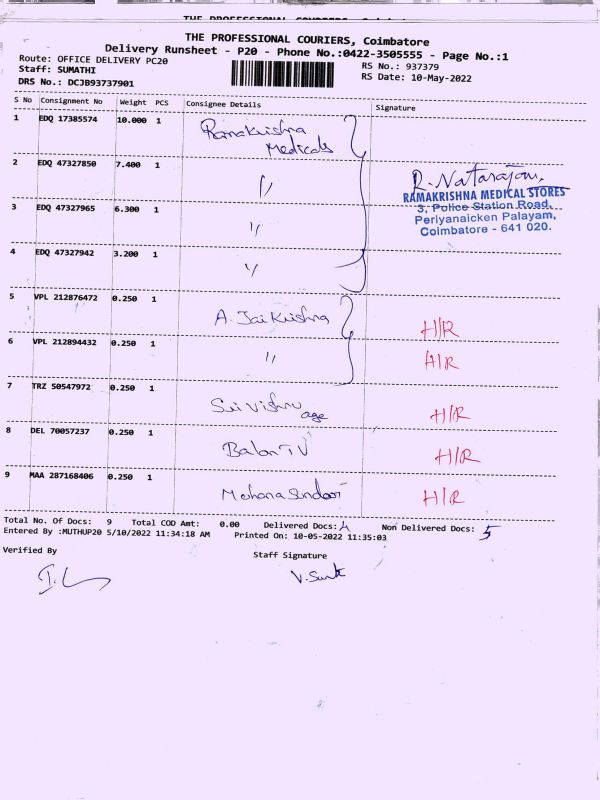 THE PROFESSIONAL COURIERS, Coimbatore
Delivery Runsheet - P20 - Phone No.:0422-3505555 - Page No.:1
Route: OFFICE DELIVERY PC20
RS No.: 937379
Staff: SUMATHI
RS Date: 10-May-2022
DRS No.: DCJB93737901
S No Consignment No Weight PCS Consignee Details Signature
1 EDQ 17385574 10.000 1 Ramakrishna
Medicals
2 EDQ 47327850 7.400 1 〃
R. Natarajan
RAMAKRISHNA MEDICAL STORES
3, Police Station Road,
Periyanaicken Palayam,
Coimbatore - 641 020.
3 EDQ 47327965 6.300 1 〃
4 EDQ 47327942 3.200 1 〃
5 VPL 212876472 0.250 1 A. Jai Krishna H/R
6 VPL 212894432 0.250 1 〃 H/R
7 TRZ 50547972 0.250 1 Sri Vishnu age H/R
8 DEL 70057237 0.250 1 Balan TV H/R
9 MAA 287168406 0.250 1 Mohana Sundari H/R
Total No. Of Docs: 9 Total COD Amt: 0.00 Delivered Docs: 4 Non Delivered Docs: 5
Entered By :MUTHUP20 5/10/2022 11:34:18 AM Printed On: 10-05-2022 11:35:03
Verified By
Staff Signature